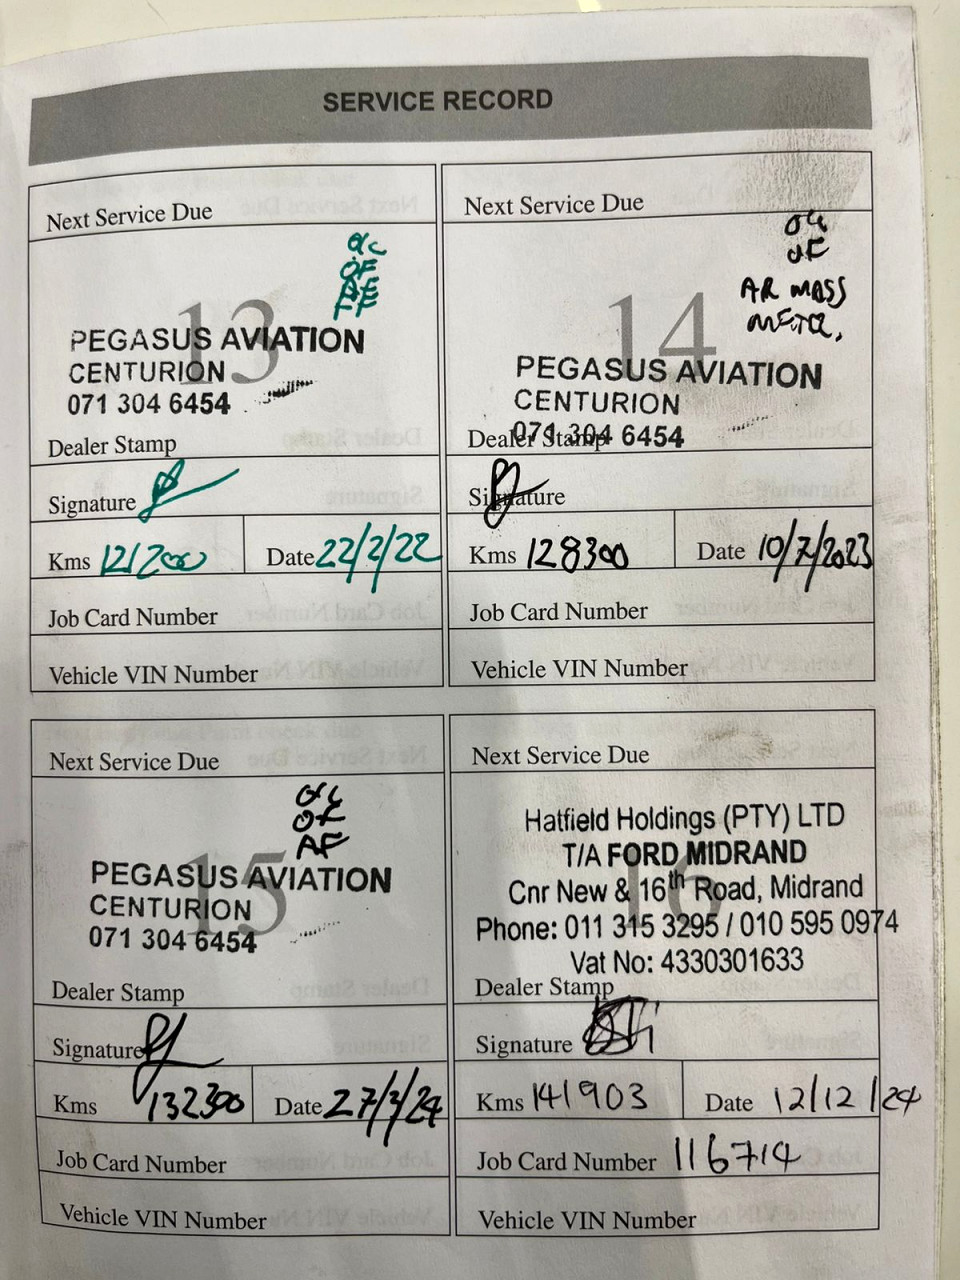 SERVICE RECORD
Next Service Due
O/C
OF
AF
FF
13
PEGASUS AVIATION
CENTURION
071 304 6454
Dealer Stamp
Signature
Kms 121200 Date 22/2/22
Job Card Number
Vehicle VIN Number
Next Service Due
OF
AR MASS
METER,
14
PEGASUS AVIATION
CENTURION
071 304 6454
Dealer Stamp
Signature
Kms 128300 Date 10/7/2023
Job Card Number
Vehicle VIN Number
Next Service Due
OF
AF
15
PEGASUS AVIATION
CENTURION
071 304 6454
Dealer Stamp
Signature
Kms 132300 Date 27/3/24
Job Card Number
Vehicle VIN Number
Next Service Due
16
Hatfield Holdings (PTY) LTD
T/A FORD MIDRAND
Cnr New & 16th Road, Midrand
Phone: 011 315 3295 / 010 595 0974
Vat No: 4330301633
Dealer Stamp
Signature
Kms 141903 Date 12/12/24
Job Card Number 116714
Vehicle VIN Number